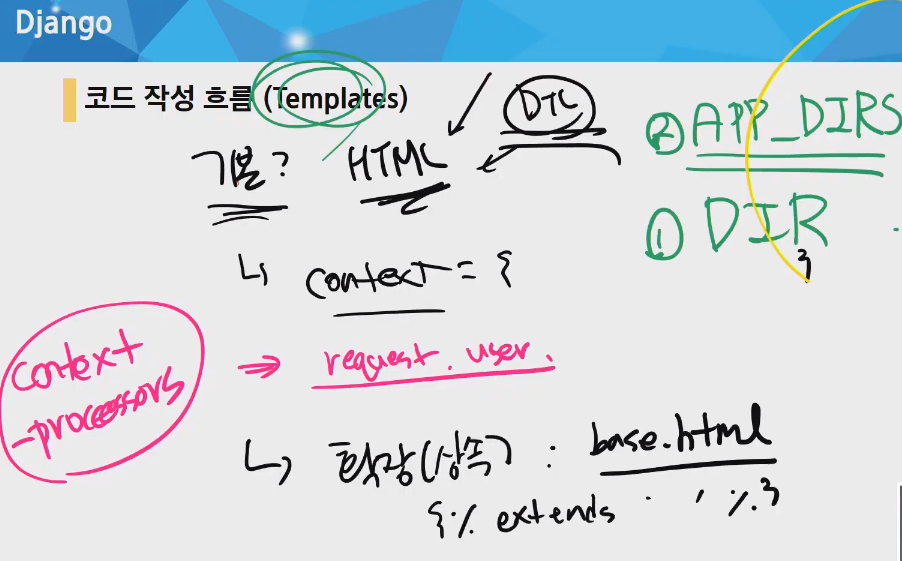 Django
코드 작성 흐름 (Templates)
DTL
② APP_DIRS
기본? HTML
① DIR
↳ context = {
}
context
-processors
⇒ request.user.
↳ 확장(상속) : base.html
{% extends ' ' %}